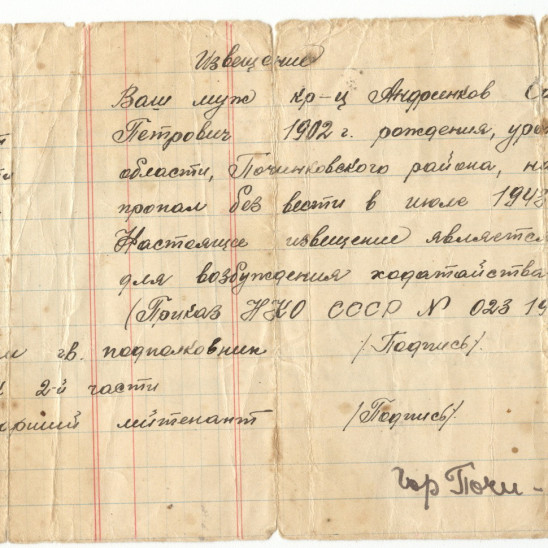 Извещение
Ваш муж кр-ц Андринков
Петрович 1902 г. рождения, уро
области, Починковского района, на
пропал без вести в июле 194
Настоящее извещение является
для возбуждения ходатайства
(Приказ НКО СССР N 023 19
гв. подполковник /Подпись/.
2-й части
лейтенант /Подпись/.
Гор Почи-